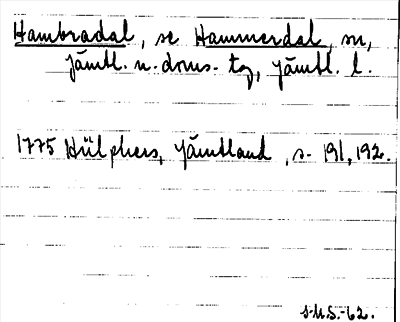 Hambradal, se Hammerdal, sn,
Jämtl. n. doms. tg, Jämtl. l.
1775 Hülphers, Jämtland, s. 191, 192.
S.U.S.-62.